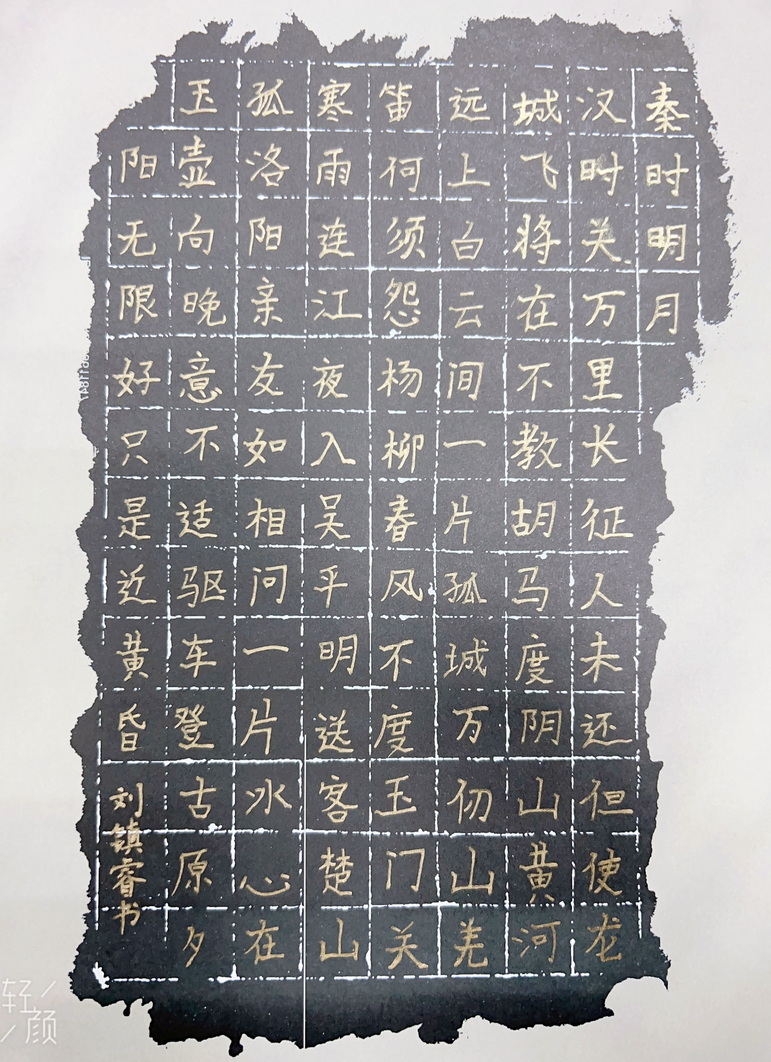 秦时明月
汉时关万里长征人未还但使龙
城飞将在不教胡马度阴山黄河
远上白云间一片孤城万仞山羌
笛何须怨杨柳春风不度玉门关
寒雨连江夜入吴平明送客楚山
孤洛阳亲友如相问一片冰心在
玉壶向晚意不适驱车登古原夕
阳无限好只是近黄昏
刘镇睿书
轻颜